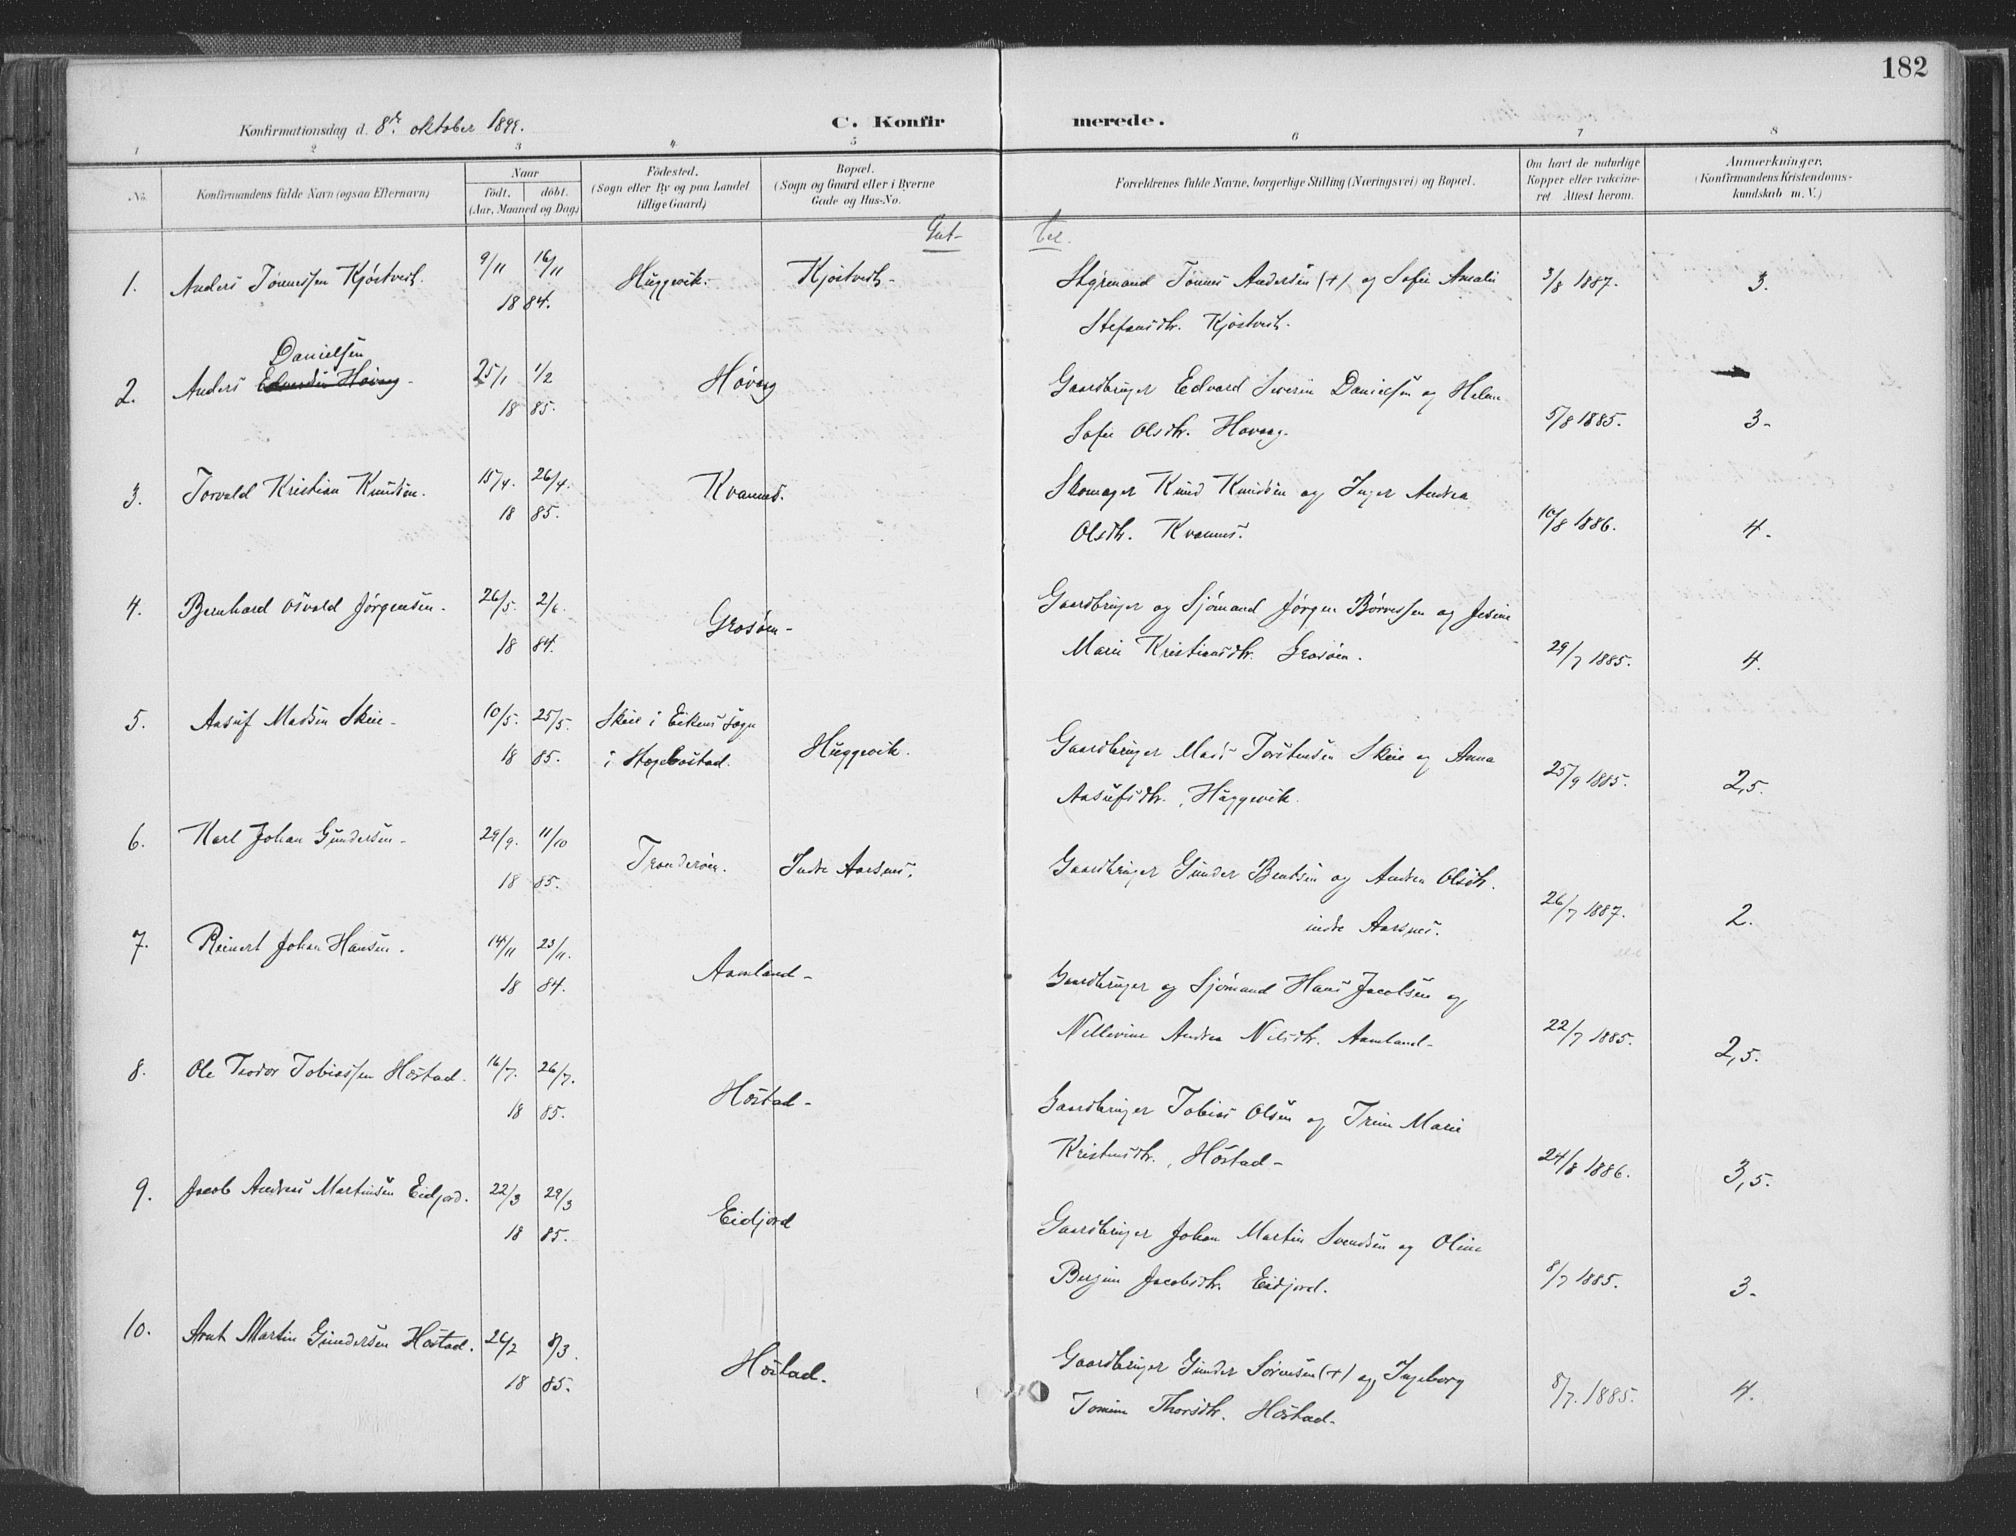 182
Konfirmationsdag d. 8de oktober 1899.
C. Konfirmerede.
1 2 3 4 5 6 7 8
No.
Konfirmandens fulde Navn (ogsaa Efternavn)
Naar
født. døbt.
(Aar, Maaned og Dag)
Födested.
(Sogn eller By og paa Landet
tillige Gaard)
Bopæl.
(Sogn og Gaard eller i Byerne
Gade og Hus-No.
Forældrenes fulde Navne, borgerlige Stilling (Næringsvei) og Bopæl.
Om havt de naturlige
Kopper eller vakcine-
ret Attest herom.
Anmærkninger.
(Konfirmandens Kristendoms-
kundskab m. V.)
Gut- ter.
1. Anders Tønnessen Kjøstvedt. 9/11 16/11 Huggevik. Kjøstvedt- Styrmand Tønnes Andersen (+) og Sofie Amalie 3/8 1887. 3.
18 84. Stefansdtr. Kjøstvedt.
Danielsen
2. Anders Edvardsen Høvåg- 25/1 1/2 Høvåg Gaardbruger Edvard Severin Danielsen og Helene
18 85. Sofie Olsdtr. Hovaag. 5/8 1885. 3-
3. Torvald Kristian Knudsen. 15/4. 26/4. Kvannes. Skomager Knud Knudsen og Inger Andrea
18 85. Olsdtr. Kvannes. 10/8 1886. 4.
4. Bernhard Osvald Jørgensen. 26/5. 2/6. Grosøen- Gaardbruger og Sjømand Jørgen Børresen og Jesine
18 84. Marie Kristiansdtr. Grosøen. 29/7 1885. 4.
5. Aasuf Madsen Skeie- 10/5. 25/5. Skeie i Eikens Sogn
18 85. i Hægebostad. Huggevik. Gaardbruger Mads Torstensen Skeie og Anna
Aasufsdtr., Huggevik. 25/9 1885. 2,5.
6. Karl Johan Gundersen- 29/9. 11/10 Tronderøen. Indre Aarsnes. Gaardbruger Gunder Bentsen og Andrea Olsdtr.
18 85. indre Aarsnes. 26/7 1887. 2.
7. Reinert Johan Hansen. 14/11 23/11. Aamland- Gaardbruger og Sjømand Hans Jacobsen og
18 84. Nillevine Andrea Nilsdtr. Aamland- 22/7 1885. 2,5.
8. Ole Teodor Tobiassen Høstad. 16/7. 26/7. Høstad- Gaardbruger Tobias Olsen og Trine Marie
18 85. Kristensdtr., Høstad- 24/8 1886. 3,5.
9. Jacob Andreas Martinsen Eidjord. 22/3 29/3 Eidjord Gaardbruger Johan Martin Svendsen og Oline
18 85. Bergine Jacobsdtr. Eidjord. 8/7 1885. 3-
10. Arnt Martin Gundersen Høstad. 24/2 8/3. Høstad. Gaardbruger Gunder Sørensen (+) og Ingeborg
18 85. Tomine Thorsdtr. Høstad- 8/7. 1885. 4.